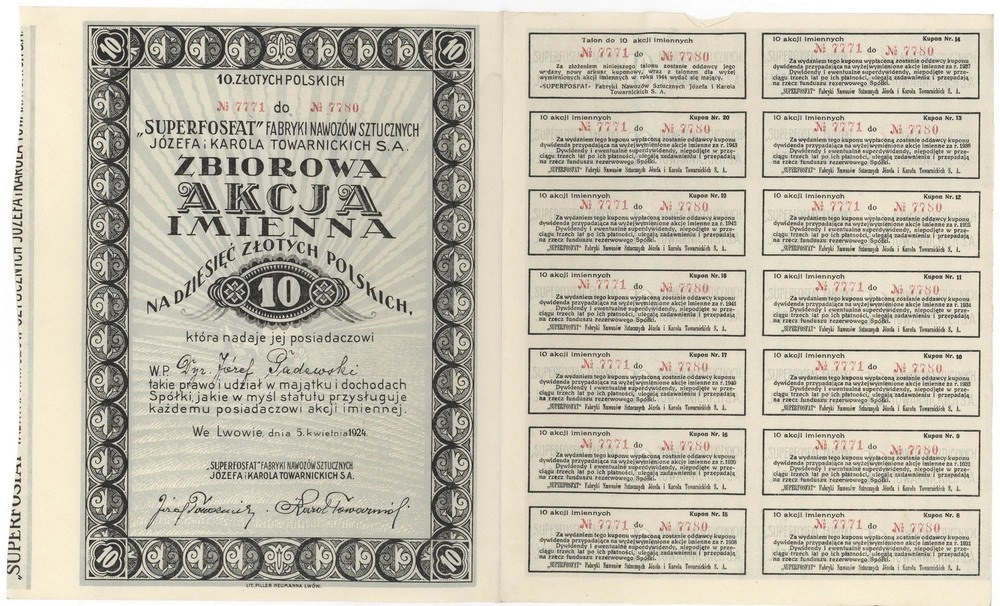 10
10
10.ZŁOTYCH POLSKICH
№ 7771 do № 7780
„SUPERFOSFAT" FABRYKI NAWOZÓW SZTUCZNYCH
JÓZEFA i KAROLA TOWARNICKICH S.A.
ZBIOROWA
AKCJA
IMIENNA
NA DZIESIĘĆ ZŁOTYCH POLSKICH,
10
która nadaje jej posiadaczowi
W.P. Dyr. Józef
takie prawo i udział w majątku i dochodach
Spółki, jakie w myśl statutu przysługuje
każdemu posiadaczowi akcji imiennej.
We Lwowie, dnia 5. kwietnia 1924.
„SUPERFOSFAT" FABRYKI NAWOZÓW SZTUCZNYCH
JÓZEFA i KAROLA TOWARNICKICH S.A.
Józef Towarnicki. Karol Towarnicki.
10
10
LIT. PILLER NEUMANNA LWÓW.
Talon do 10 akcji imiennych
№ 7771 do № 7780
Za złożeniem niniejszego talonu zostanie oddawcy jego
wydany nowy arkusz kuponowy, wraz z talonem dla wyżej
wymienionych akcji imiennych w roku 1944 wydać się mający.
„SUPERFOSFAT" Fabryki Nawozów Sztucznych Józefa i Karola
Towarnickich S. A.
10 akcji imiennych Kupon Nr. 20
№ 7771 do № 7780
Za wydaniem tego kuponu wypłaconą zostanie oddawcy kuponu
dywidenda przypadająca na wyżejwymienione akcje imienne za r. 1943
Dywidendy i ewentualne superdywidendy, niepodjęte w prze-
ciągu trzech lat po ich płatności, ulegają zadawnieniu i przepadają
na rzecz funduszu rezerwowego Spółki.
„SUPERFOSFAT" Fabryki Nawozów Sztucznych Józefa i Karola Towarnickich S. A.
10 akcji imiennych Kupon Nr. 19
№ 7771 do № 7780
Za wydaniem tego kuponu wypłaconą zostanie oddawcy kuponu
dywidenda przypadająca na wyżejwymienione akcje imienne za r. 1942
Dywidendy i ewentualne superdywidendy, niepodjęte w prze-
ciągu trzech lat po ich płatności, ulegają zadawnieniu i przepadają
na rzecz funduszu rezerwowego Spółki.
„SUPERFOSFAT" Fabryki Nawozów Sztucznych Józefa i Karola Towarnickich S. A.
10 akcji imiennych Kupon Nr. 18
№ 7771 do № 7780
Za wydaniem tego kuponu wypłaconą zostanie oddawcy kuponu
dywidenda przypadająca na wyżejwymienione akcje imienne za r. 1941
Dywidendy i ewentualne superdywidendy, niepodjęte w prze-
ciągu trzech lat po ich płatności, ulegają zadawnieniu i przepadają
na rzecz funduszu rezerwowego Spółki.
„SUPERFOSFAT" Fabryki Nawozów Sztucznych Józefa i Karola Towarnickich S. A.
10 akcji imiennych Kupon Nr. 17
№ 7771 do № 7780
Za wydaniem tego kuponu wypłaconą zostanie oddawcy kuponu
dywidenda przypadająca na wyżejwymienione akcje imienne za r. 1940
Dywidendy i ewentualne superdywidendy, niepodjęte w prze-
ciągu trzech lat po ich płatności, ulegają zadawnieniu i przepadają
na rzecz funduszu rezerwowego Spółki.
„SUPERFOSFAT" Fabryki Nawozów Sztucznych Józefa i Karola Towarnickich S. A.
10 akcji imiennych Kupon Nr. 16
№ 7771 do № 7780
Za wydaniem tego kuponu wypłaconą zostanie oddawcy kuponu
dywidenda przypadająca na wyżejwymienione akcje imienne za r. 1939
Dywidendy i ewentualne superdywidendy, niepodjęte w prze-
ciągu trzech lat po ich płatności, ulegają zadawnieniu i przepadają
na rzecz funduszu rezerwowego Spółki.
„SUPERFOSFAT" Fabryki Nawozów Sztucznych Józefa i Karola Towarnickich S. A.
10 akcji imiennych Kupon Nr. 15
№ 7771 do № 7780
Za wydaniem tego kuponu wypłaconą zostanie oddawcy kuponu
dywidenda przypadająca na wyżejwymienione akcje imienne za r. 1938
Dywidendy i ewentualne superdywidendy, niepodjęte w prze-
ciągu trzech lat po ich płatności, ulegają zadawnieniu i przepadają
na rzecz funduszu rezerwowego Spółki.
„SUPERFOSFAT" Fabryki Nawozów Sztucznych Józefa i Karola Towarnickich S. A.
10 akcji imiennych Kupon Nr. 14
№ 7771 do № 7780
Za wydaniem tego kuponu wypłaconą zostanie oddawcy kuponu
dywidenda przypadająca na wyżejwymienione akcje imienne za r. 1937
Dywidendy i ewentualne superdywidendy, niepodjęte w prze-
ciągu trzech lat po ich płatności, ulegają zadawnieniu i przepadają
na rzecz funduszu rezerwowego Spółki.
„SUPERFOSFAT" Fabryki Nawozów Sztucznych Józefa i Karola Towarnickich S. A.
10 akcji imiennych Kupon Nr. 13
№ 7771 do № 7780
Za wydaniem tego kuponu wypłaconą zostanie oddawcy kuponu
dywidenda przypadająca na wyżejwymienione akcje imienne za r. 1936
Dywidendy i ewentualne superdywidendy, niepodjęte w prze-
ciągu trzech lat po ich płatności, ulegają zadawnieniu i przepadają
na rzecz funduszu rezerwowego Spółki.
„SUPERFOSFAT" Fabryki Nawozów Sztucznych Józefa i Karola Towarnickich S. A.
10 akcji imiennych Kupon Nr. 12
№ 7771 do № 7780
Za wydaniem tego kuponu wypłaconą zostanie oddawcy kuponu
dywidenda przypadająca na wyżejwymienione akcje imienne za r. 1935
Dywidendy i ewentualne superdywidendy, niepodjęte w prze-
ciągu trzech lat po ich płatności, ulegają zadawnieniu i przepadają
na rzecz funduszu rezerwowego Spółki.
„SUPERFOSFAT" Fabryki Nawozów Sztucznych Józefa i Karola Towarnickich S. A.
10 akcji imiennych Kupon Nr. 11
№ 7771 do № 7780
Za wydaniem tego kuponu wypłaconą zostanie oddawcy kuponu
dywidenda przypadająca na wyżejwymienione akcje imienne za r. 1934
Dywidendy i ewentualne superdywidendy, niepodjęte w prze-
ciągu trzech lat po ich płatności, ulegają zadawnieniu i przepadają
na rzecz funduszu rezerwowego Spółki.
„SUPERFOSFAT" Fabryki Nawozów Sztucznych Józefa i Karola Towarnickich S. A.
10 akcji imiennych Kupon Nr. 10
№ 7771 do № 7780
Za wydaniem tego kuponu wypłaconą zostanie oddawcy kuponu
dywidenda przypadająca na wyżejwymienione akcje imienne za r. 1933
Dywidendy i ewentualne superdywidendy, niepodjęte w prze-
ciągu trzech lat po ich płatności, ulegają zadawnieniu i przepadają
na rzecz funduszu rezerwowego Spółki.
„SUPERFOSFAT" Fabryki Nawozów Sztucznych Józefa i Karola Towarnickich S. A.
10 akcji imiennych Kupon Nr. 9
№ 7771 do № 7780
Za wydaniem tego kuponu wypłaconą zostanie oddawcy kuponu
dywidenda przypadająca na wyżejwymienione akcje imienne za r. 1932
Dywidendy i ewentualne superdywidendy, niepodjęte w prze-
ciągu trzech lat po ich płatności, ulegają zadawnieniu i przepadają
na rzecz funduszu rezerwowego Spółki.
„SUPERFOSFAT" Fabryki Nawozów Sztucznych Józefa i Karola Towarnickich S. A.
10 akcji imiennych Kupon Nr. 8
№ 7771 do № 7780
Za wydaniem tego kuponu wypłaconą zostanie oddawcy kuponu
dywidenda przypadająca na wyżejwymienione akcje imienne za r. 1931
Dywidendy i ewentualne superdywidendy, niepodjęte w prze-
ciągu trzech lat po ich płatności, ulegają zadawnieniu i przepadają
na rzecz funduszu rezerwowego Spółki.
„SUPERFOSFAT" Fabryki Nawozów Sztucznych Józefa i Karola Towarnickich S. A.